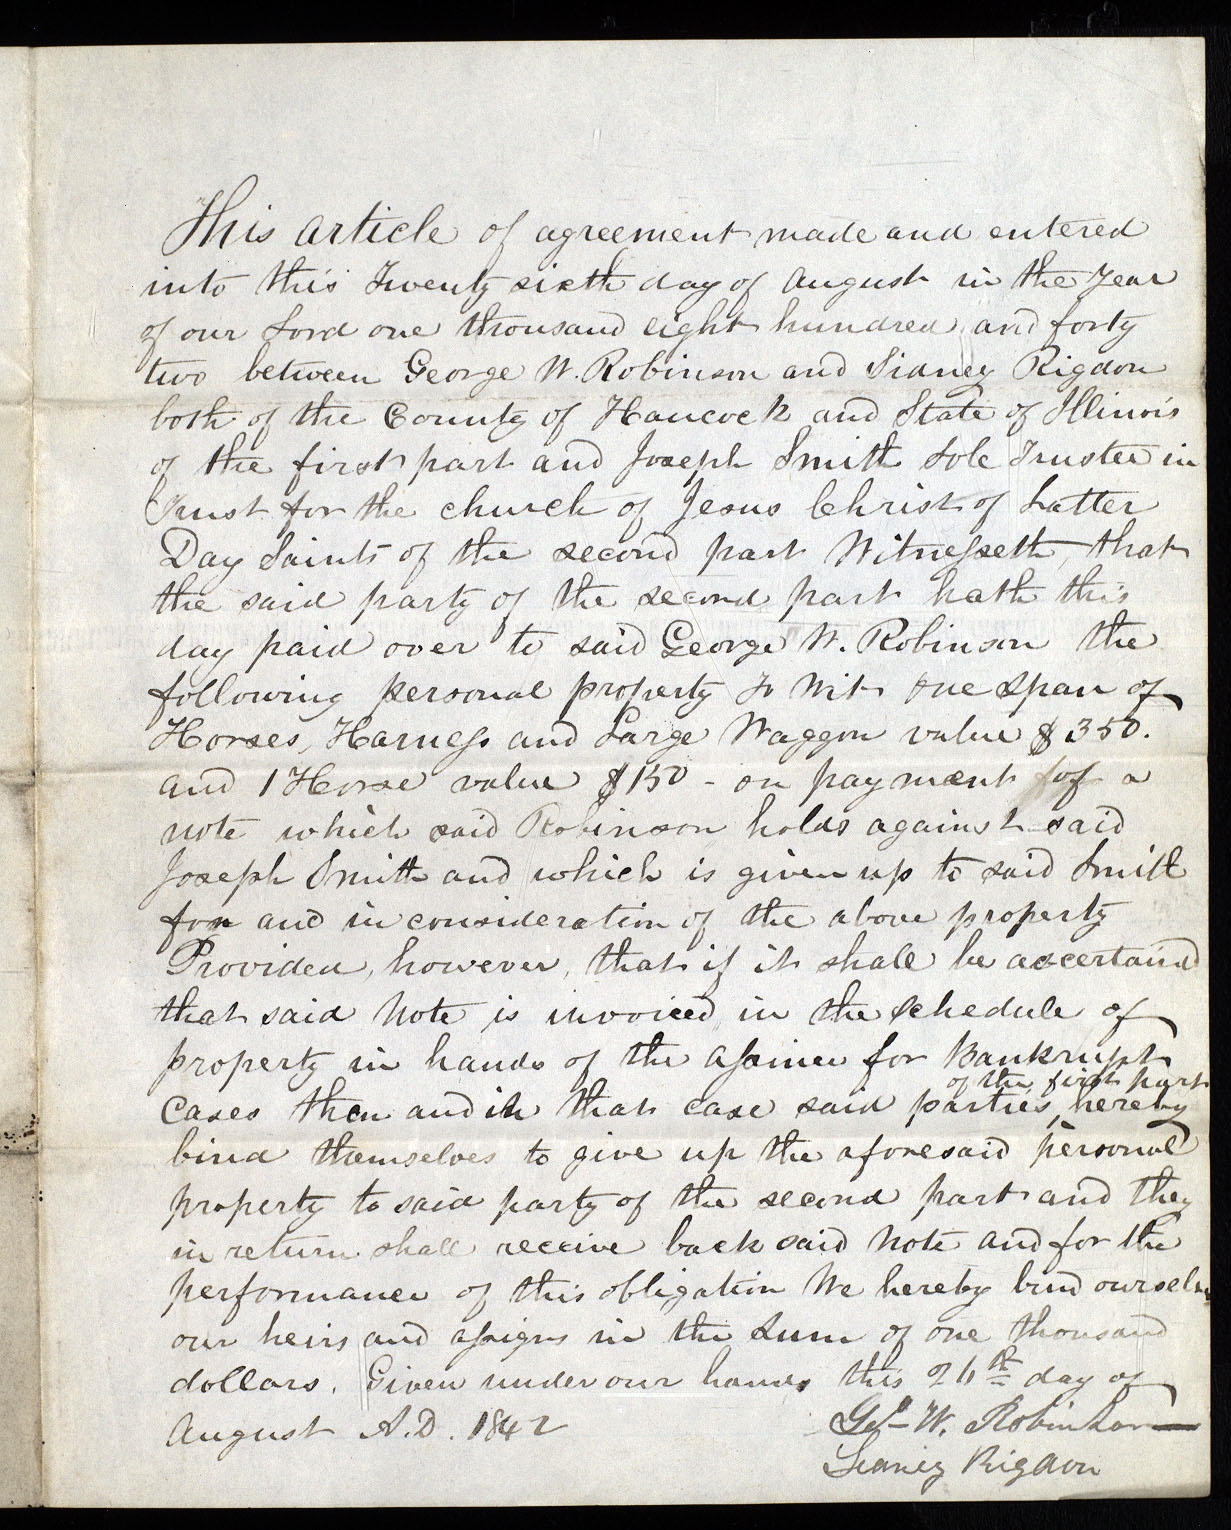 This article of agreement made and entered
into this Twenty sixth day of August in the Year
of our Lord one thousand eight hundred and forty
two between George W. Robinson and Sidney Rigdon
both of the County of Hancock and State of Illinois
of the first part and Joseph Smith Sole Trustee in
Trust for the church of Jesus Christ of Latter
Day Saints of the second part Witnesseth, that
the said party of the second part hath this
day paid over to said George W. Robinson the
following personal property to Wit one span of
Horses, Harness and Large Waggon value $350.
and 1 Horse value $150 - on payment of a
note which said Robinson holds against said
Joseph Smith and which is given up to said Smith
for and in consideration of the above property
Provided, however, that if it shall be ascertaind
that said Note is invoiced in the Schedule of
property in hands of the assinee for Bankrupt
of the first part
Cases then and in that case said parties hereby
bind themselves to give up the aforesaid personal
property to said party of the second part and they
in return shall receive back said Note and for the
performance of this obligation We hereby bind ourselves
our heirs and assigns in the Sum of one thousand
dollars. Given under our hands this 26th day of
August A.D. 1842
Geo W. Robinson
Sidney Rigdon